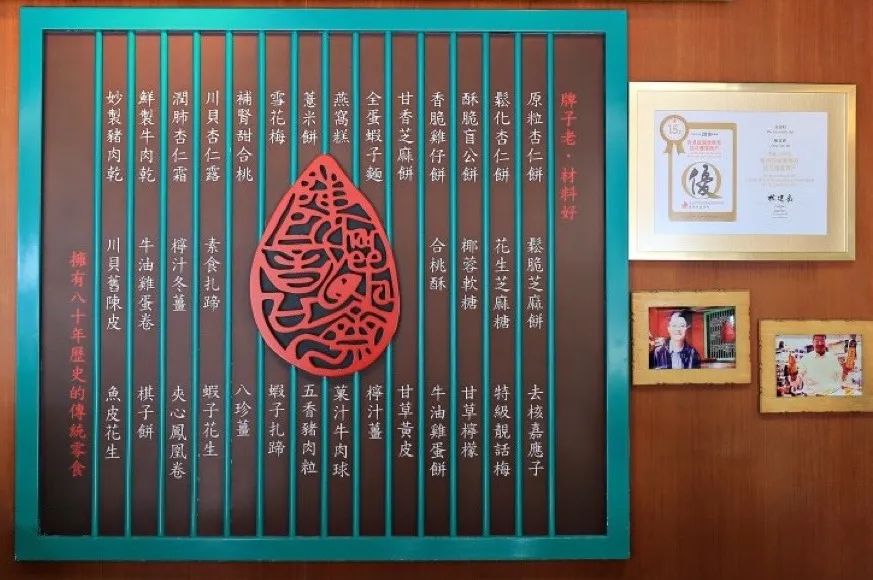 牌子老·材料好
原粒杏仁餅 鬆脆芝麻餅 去核嘉應子
鬆化杏仁餅 花生芝麻糖 特級靚話梅
酥脆盲公餅 椰蓉軟糖 甘草檸檬
香脆雞仔餅 合桃酥 牛油雞蛋餅
甘香芝麻餅 甘草黃皮
全蛋蝦子麵 檸汁薑
燕窩糕 菓汁牛肉球
薏米餅 五香豬肉粒
雪花梅 蝦子扎蹄
補腎甜合桃 八珍薑
川貝杏仁露 素食扎蹄 蝦子花生
潤肺杏仁霜 檸汁冬薑 夾心鳳凰卷
鮮製牛肉乾 牛油雞蛋卷 棋子餅
妙製豬肉乾 川貝舊陳皮 魚皮花生
擁有八十年歷史的傳統零食
15
優